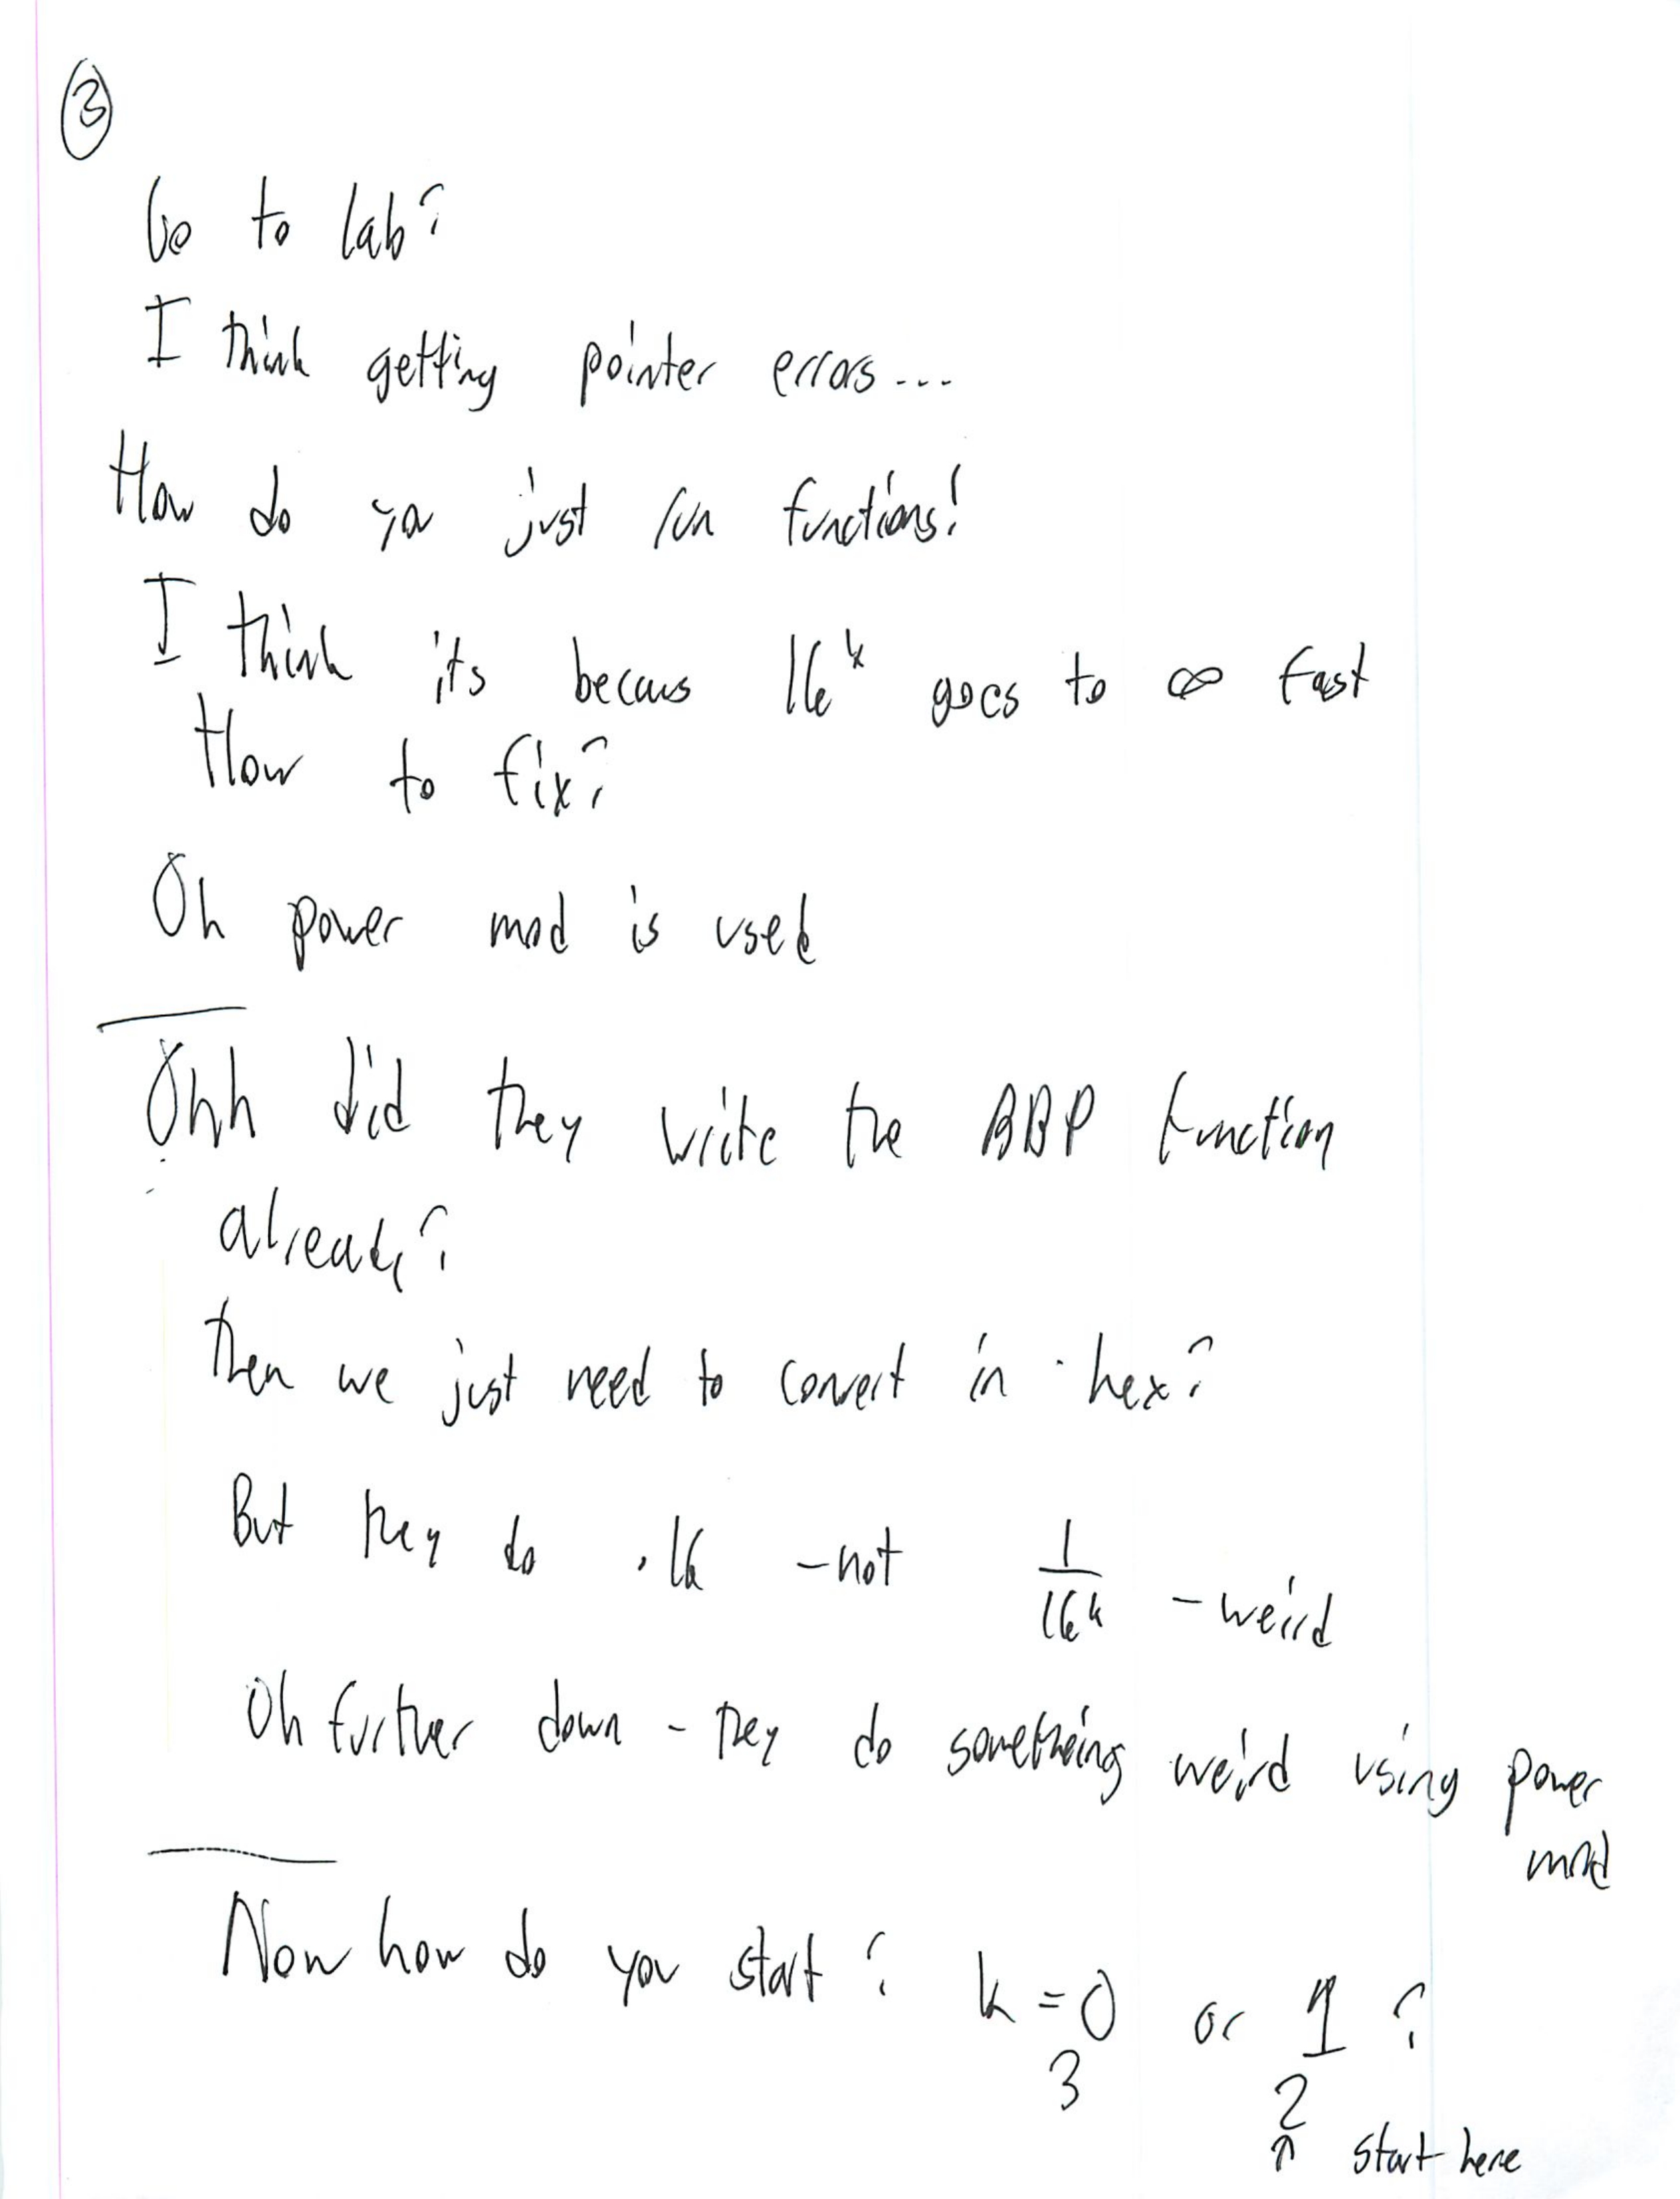 3
Go to lab?
I think getting pointer errors...
How do you just run functions!
I think its becaus 16^k goes to ∞ fast
How to fix?
Oh power mod is used
Ohh did they write the BBP function
already?
Then we just need to convert in hex?
But they do .16 - not 1/16^k - weird
Oh further down - they do something weird using power
mod
Now how do you start? k = 0 or 1?
3 2
↑ start here